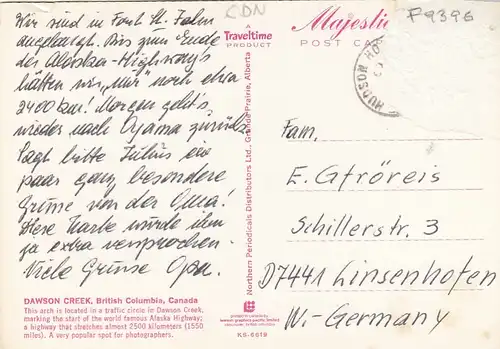 Wir sind in Fort St. John
angelangt. Bis zum Ende
des Alaska-Highways
hätten wir „nur" noch etwa
2400 km! Morgen geht's
wieder nach Oyama zurück.
Sagt bitte Julius ein
paar ganz besondere
Grüsse von der Oma!
Diese Karte wurde ihm
ja extra versprochen.
Viele Grüsse Opa.
DAWSON CREEK, British Columbia, Canada
This arch is located in a traffic circle in Dawson Creek,
marking the start of the world famous Alaska Highway;
a highway that stretches almost 2500 kilometers (1550
miles). A very popular spot for photographers.
CDN
A
Traveltime
PRODUCT
Northern Periodicals Distributors Ltd., Grande Prairie, Alberta
KS-6619
Majestic
POST CA
P9396
HUDSON HO
Fam.
E. Gfröreis
Schillerstr. 3
D7441 Linsenhofen
W.-Germany